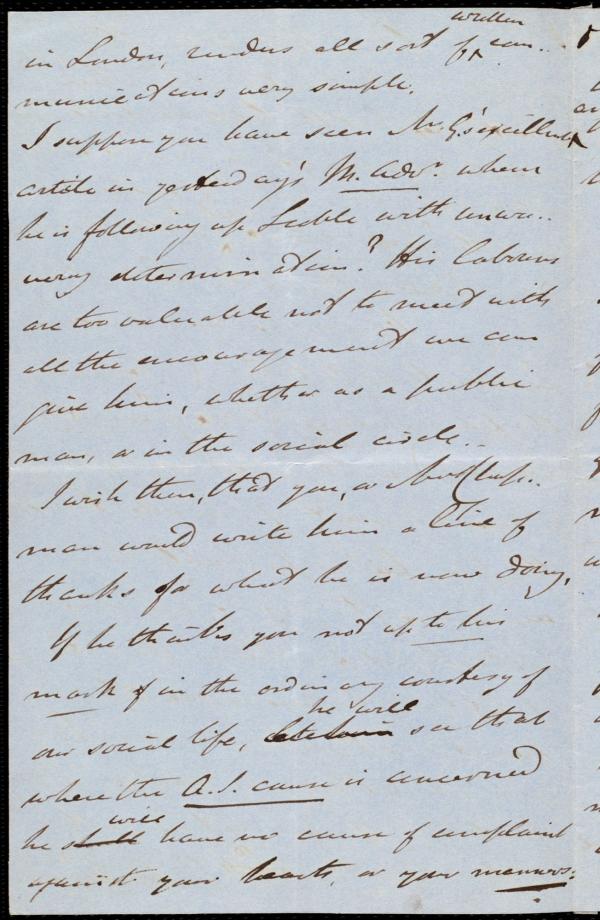 in London, renders all sort of ^written com..
munications very simple.
I suppose you have seen Mr. G's excellent
article in yesterday's M. Adv.r where
he is following up with unwa..
vering determination? His labours
are too valuable not to meet with
all the encouragement we can
give him, whether as a public
man, or in the social circle..
I wish then, that you, or Mrs Chap..
man would write him a line of
thanks for what he is now doing.
If he thinks you not up to his
mark in the ordinary courtesy of
our social life, he will see that
where the A.S. cause is concerned
he shall will have no cause of complaint
against your hearts, or your manners: